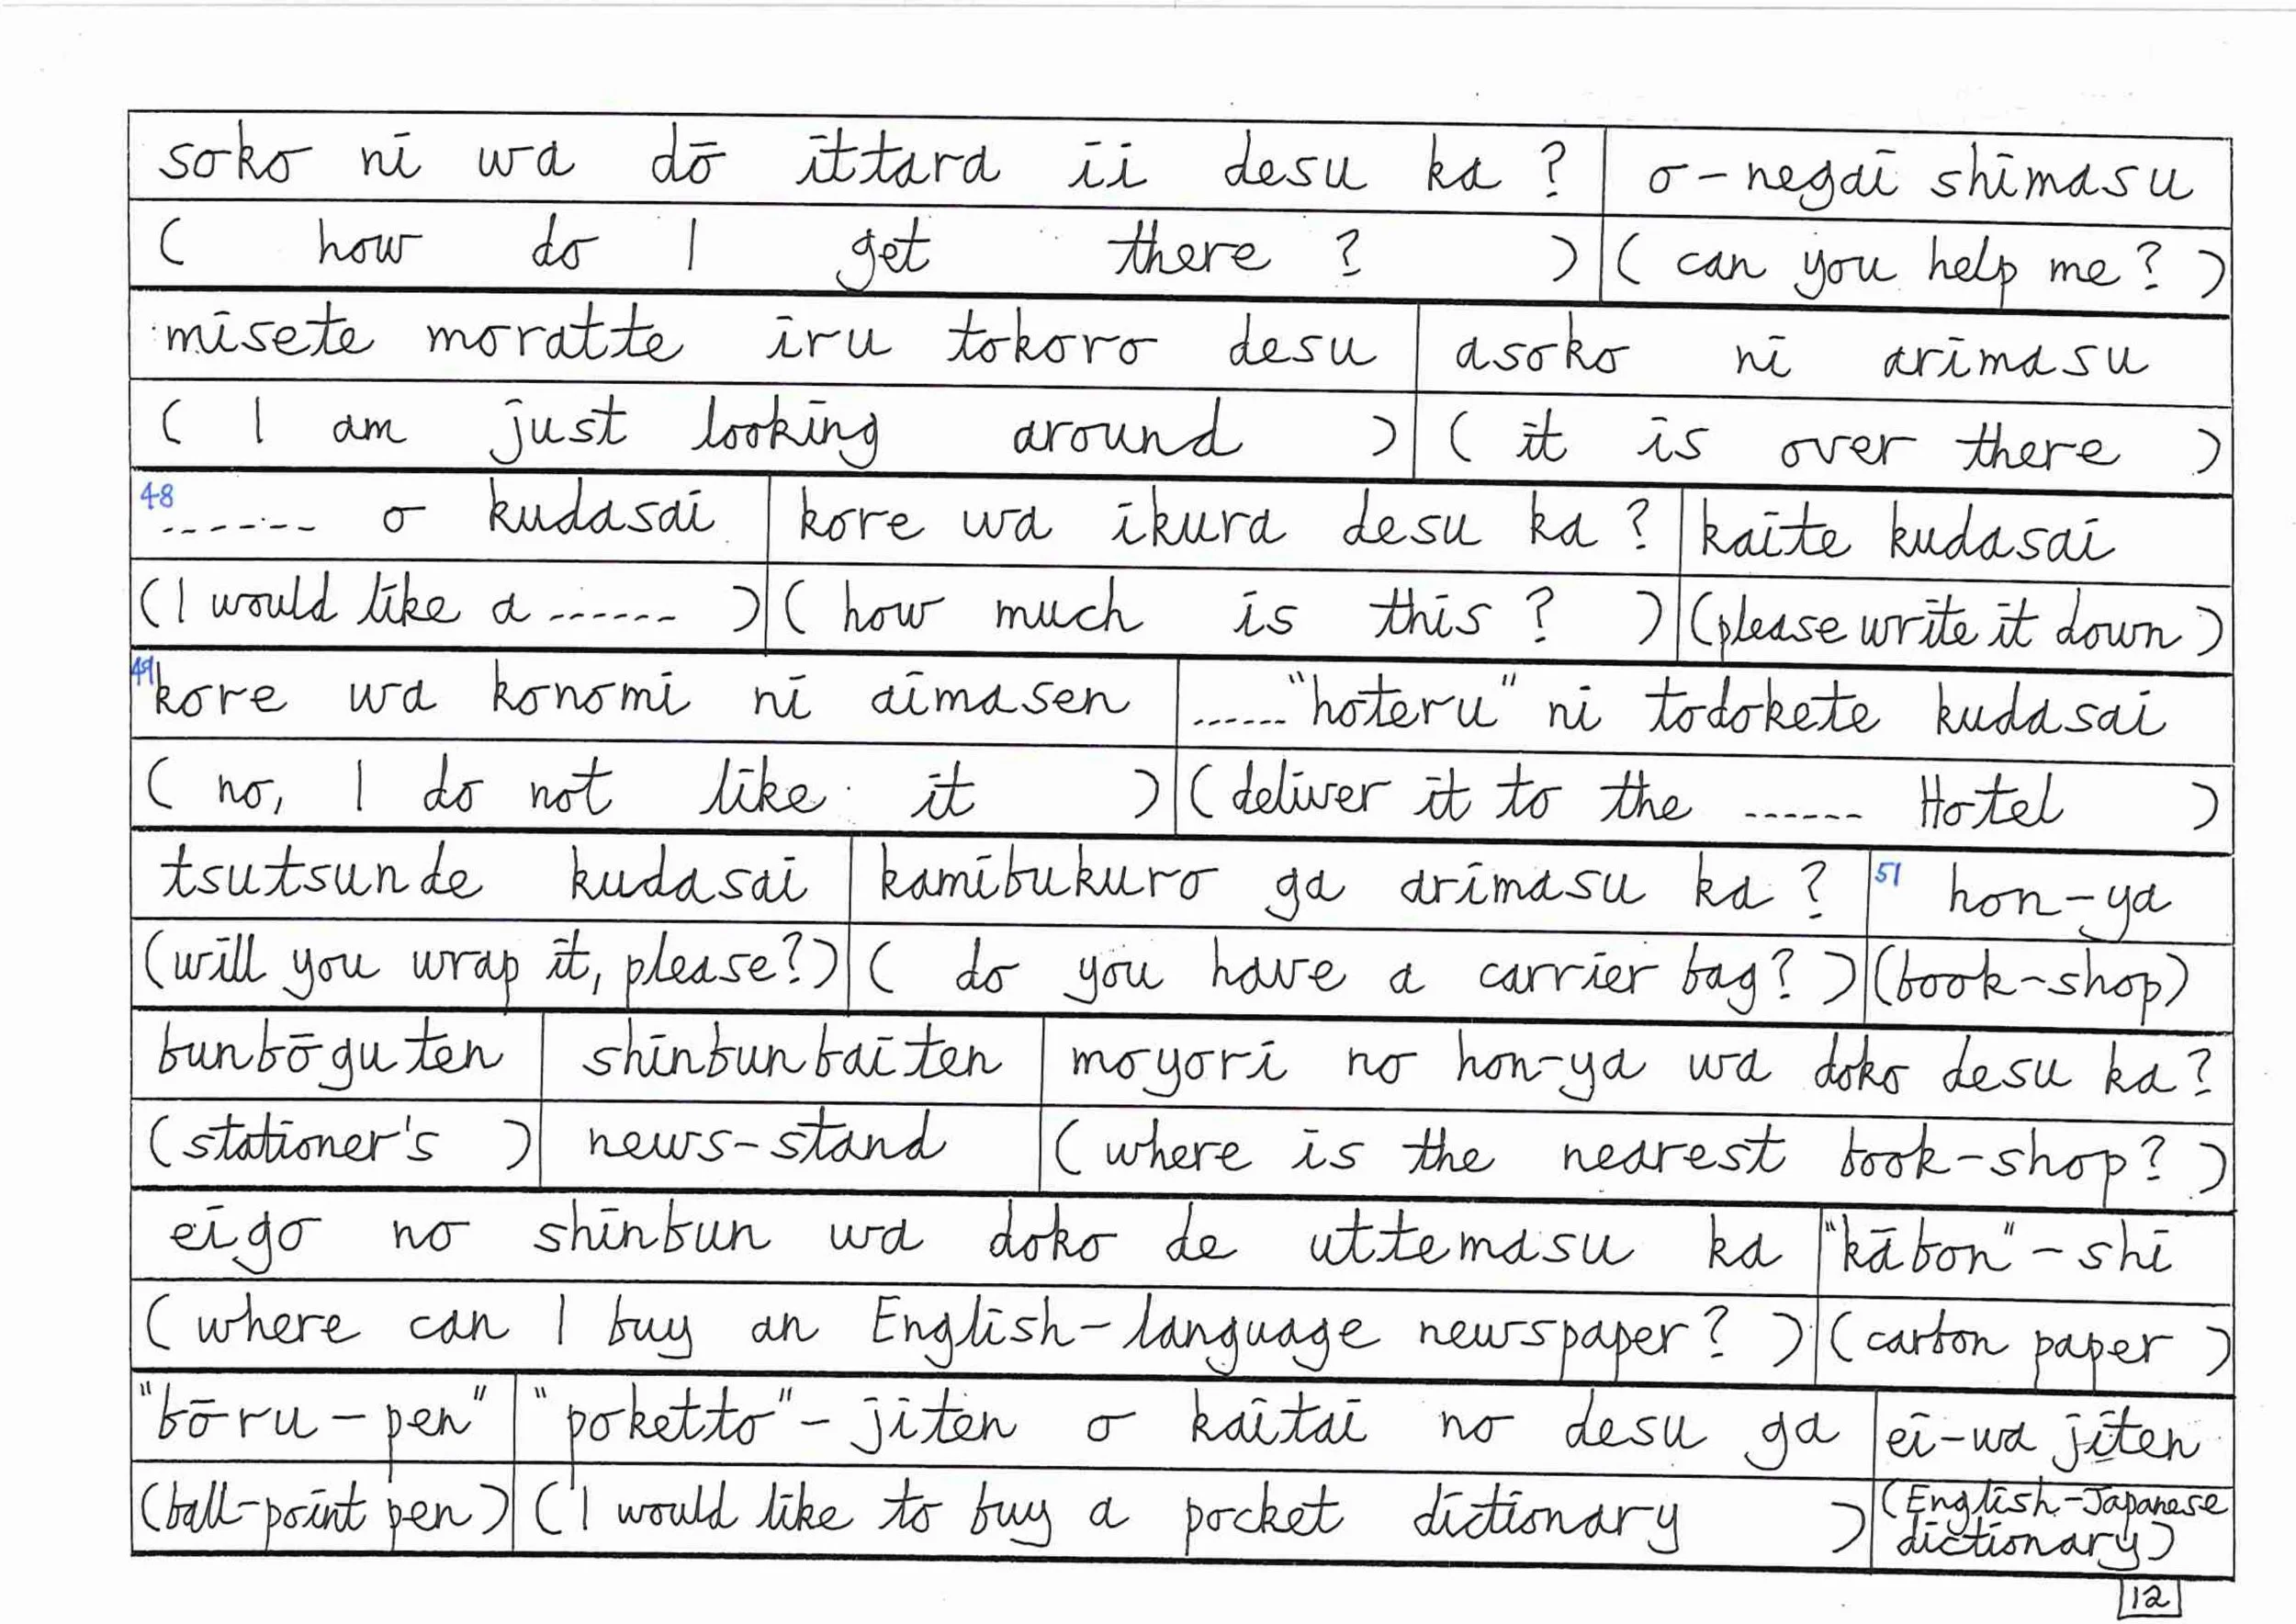 soko ni wa dō ittara ii desu ka ? o-negai shimasu
( how do I get there ? ) ( can you help me ? )
misete moratte iru tokoro desu asoko ni arimasu
( I am just looking around ) ( it is over there )
48 ------ o kudasai kore wa ikura desu ka ? kaite kudasai
(I would like a ------ ) ( how much is this ? ) (please write it down )
49 kore wa konomi ni aimasen ------ "hoteru" ni todokete kudasai
( no, I do not like it ) (deliver it to the ------ Hotel )
tsutsunde kudasai kamibukuro ga arimasu ka ? 51 hon-ya
(will you wrap it, please?) ( do you have a carrier bag? ) (book-shop)
bunbōguten shinbunbaiten moyori no hon-ya wa doko desu ka?
(stationer's ) news-stand ( where is the nearest book-shop? )
eigo no shinbun wa doko de uttemasu ka "kābon"-shi
( where can I buy an English-language newspaper? ) ( carbon paper )
"bōru-pen" "poketto"-jiten o kaitai no desu ga ei-wa jiten
(ball-point pen) ( I would like to buy a pocket dictionary ) (English-Japanese
dictionary)
12